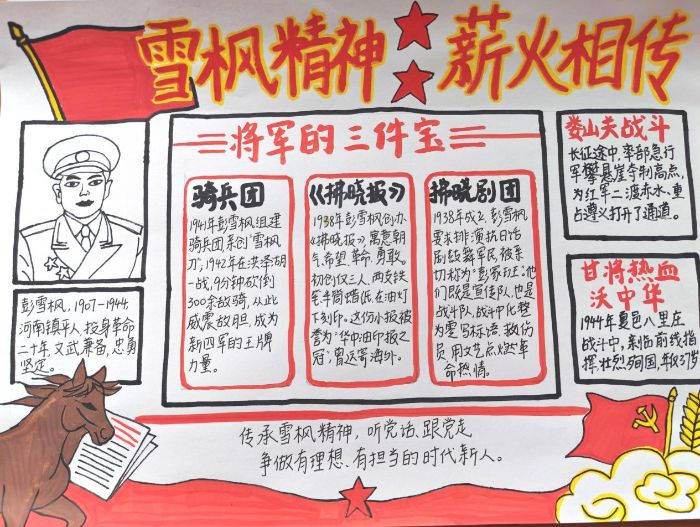 雪枫精神
薪火相传
将军的三件宝
骑兵团
1941年彭雪枫组建
骑兵团,亲创"雪枫
刀";1942年在洪泽湖
一战,9分钟砍倒
300余敌骑,从此
威震敌胆,成为
新四军的王牌
力量。
《拂晓报》
1938年彭雪枫创办
《拂晓报》,寓意朝
气、希望、革命、勇敢。
初创仅三人,两支铁
笔半筒蜡纸,在油灯
下刻印。这份小报被
誉为"华中油印报之
冠",曾远寄海外。
拂晓剧团
1938年成立,彭雪枫
要求排演抗日话
剧鼓舞军民,被亲
切称为"彭家班";他
们既是宣传队,也是
战斗队,战斗中化整
为零写标语、救伤
员,用文艺点燃革
命热情。
彭雪枫,1907-1944,
河南镇平人,投身革命
二十年,文武兼备,忠勇
坚定。
娄山关战斗
长征途中,率部急行
军攀悬崖夺制高点,
为红军二渡赤水、重
占遵义打开了通道。
甘将热血
沃中华
1944年夏邑八里庄
战斗中,亲临前线指
挥,壮烈殉国,年仅37岁
传承雪枫精神,听党话、跟党走
争做有理想、有担当的时代新人。